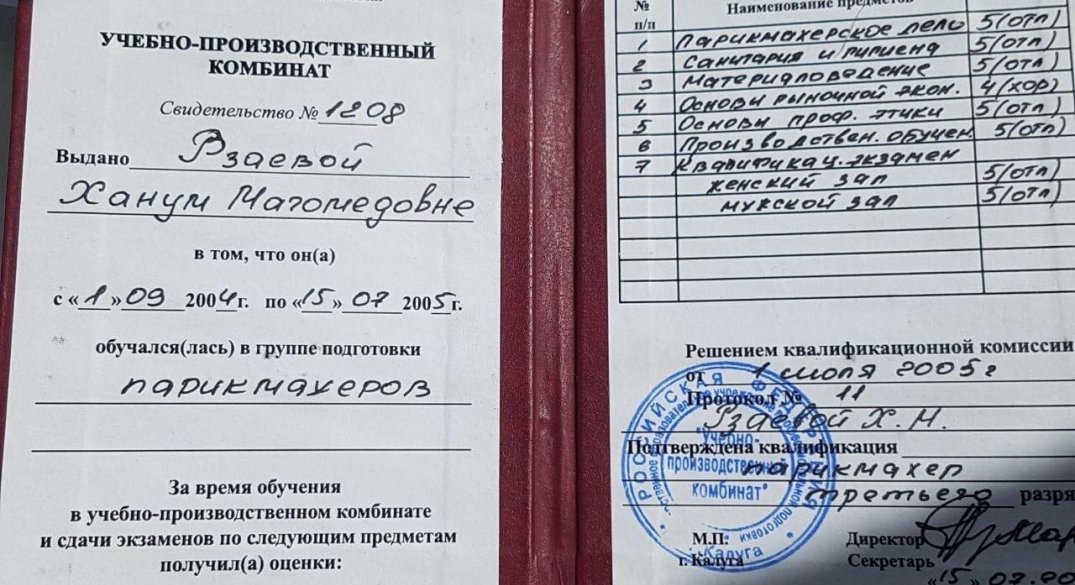 УЧЕБНО-ПРОИЗВОДСТВЕННЫЙ
КОМБИНАТ
Свидетельство № 1208
Выдано Рзаевой
Ханум Магомедовне
в том, что он(а)
с «1» 09 2004г. по «15» 07 2005г.
обучался(лась) в группе подготовки
парикмахеров
За время обучения
в учебно-производственном комбинате
и сдачи экзаменов по следующим предметам
получил(а) оценки:
№ п/п Наименование предметов
1 Парикмахерское дело 5(отл)
2 Санитария и гигиена 5(отл)
3 Материаловедение 5(отл)
4 Основы рыночной экон. 4(хор)
5 Основы проф. этики 5(отл)
6 Производствен. обучен. 5(отл)
7 Квалификац. экзамен
женский зал 5(отл)
мужской зал 5(отл)
Решением квалификационной комиссии
от 1 июля 2005г
Протокол № 11
Рзаевой Х. М.
Подтверждена квалификация
парикмахер
третьего разря
М.П. Директор
г. Калуга Секретарь
"15" 07.
РОССИЙСКАЯ ФЕДЕРАЦИЯ
"Учебно-
производственный
комбинат"
Калуга